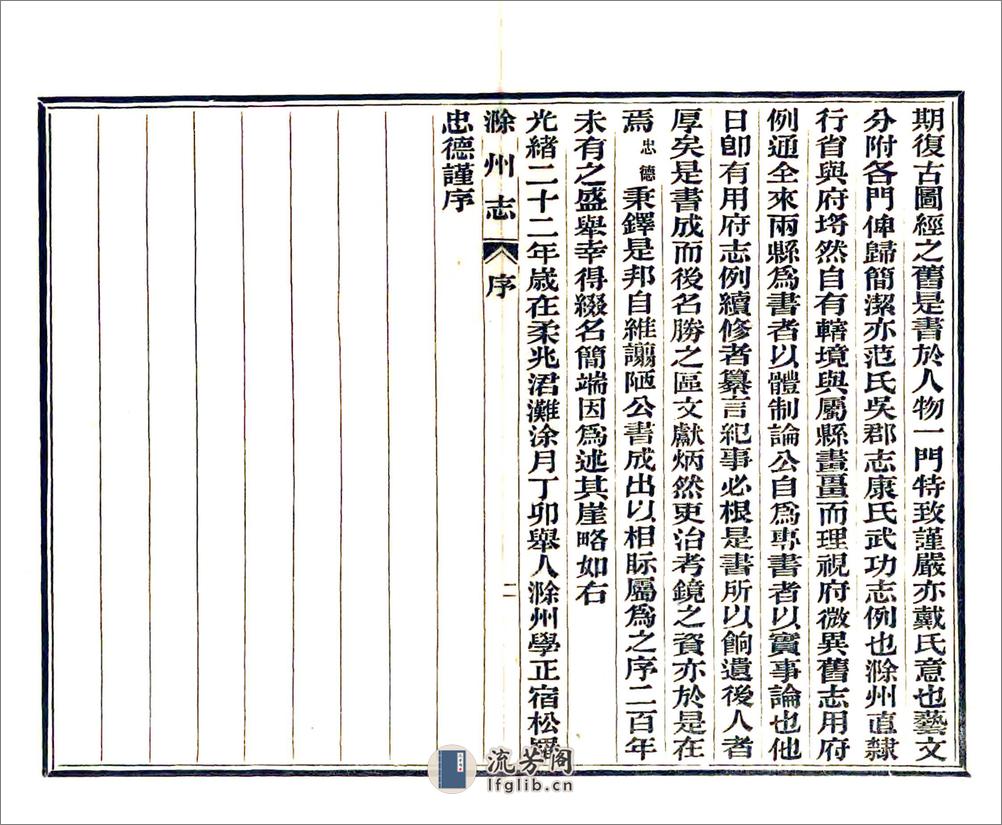 期復古圖經之舊是書於人物一門特致謹嚴亦戴氏意也藝文
分附各門俾歸簡潔亦范氏吳郡志康氏武功志例也滁州直隸
行省與府埒然自有轄境與屬縣畫畺而理視府微異舊志用府
例通全來兩縣為書者以體制論公自為專書者以實事論也他
日卽有用府志例續修者纂言紀事必根是書所以餉遺後人者
厚矣是書成而後名勝之區文獻炳然吏治考鏡之資亦於是在
焉忠德秉鐸是邦自維譾陋公書成出以相眎屬為之序二百年
未有之盛舉幸得綴名簡端因為述其崖略如右
光緒二十二年歲在柔兆涒灘涂月丁卯舉人滁州學正宿松
滁州志 序 二
忠德謹序
流芳閣
lfglib.cn